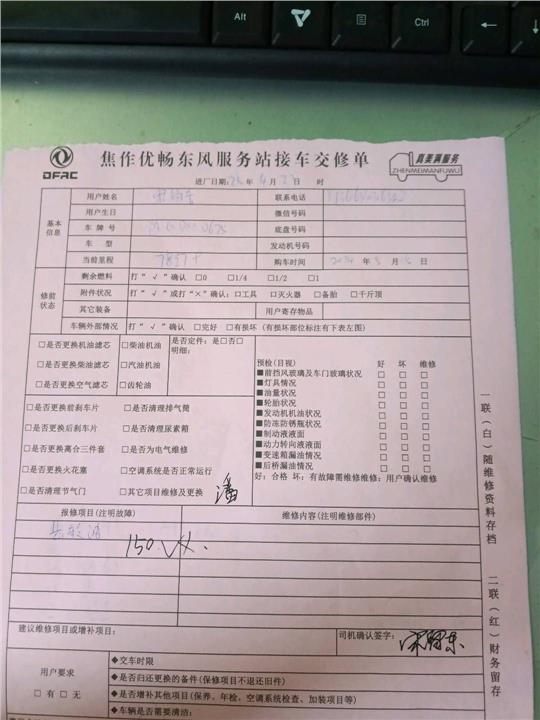 Alt
Ctrl
DFAC
焦作优畅东风服务站接车交修单
真美满服务
ZHENMEIMANFUWU
进厂日期: 年 4 月 日 时
基本信息
用户姓名 联系电话
用户生日 微信号码
车 牌 号 底盘号码
车 型 发动机号码
当前里程 购车时间 年 月 日
修前状态
剩余燃料 打“√”确认 □0 □1/4 □1/2 □1
附件状况 打“√”或打“×”确认:□工具 □灭火器 □备胎 □千斤顶
其它装备 用户寄存物品
车辆外部情况 打“√”确认 □完好 □有损坏(有损坏部位标注有下表左图)
□是否更换机油滤芯 □柴油机油 是否定件:是□否□
明细:
□是否更换柴油滤芯 □汽油机油
□是否更换空气滤芯 □齿轮油
□是否更换前刹车片 □是否清理排气筒
□是否更换后刹车片 □是否清理尿素箱
□是否更换离合三件套 □是否为电气维修
□是否更换火花塞 □空调系统是否正常运行
□是否清理节气门 □其它项目维修及更换 潘
预检(目视) 好 坏 维修
■前挡风玻璃及车门玻璃状况 □ □ □
■灯具情况 □ □ □
■油量状况 □ □ □
■轮胎状况 □ □ □
■发动机机油状况 □ □ □
■防冻防锈瓶状况 □ □ □
■制动液液面 □ □ □
■动力转向液液面 □ □ □
■变速箱漏油情况 □ □ □
■后桥漏油情况 □ □ □
好:合格 坏:有故障需维修维修:用户确认维修
报修项目(注明故障) 维修内容(注明维修部件)
150
建议维修项目或增补项目:
司机确认签字:
用户要求
□有 □无
◆交车时限
◆是否归还更换的备件(保修项目不退还旧件)
◆是否增补其他项目(保养、年检、空调系统检查、加装项目等)
◆车辆是否需要清洁:
一联(白)随维修资料存档
二联(红)财务留存